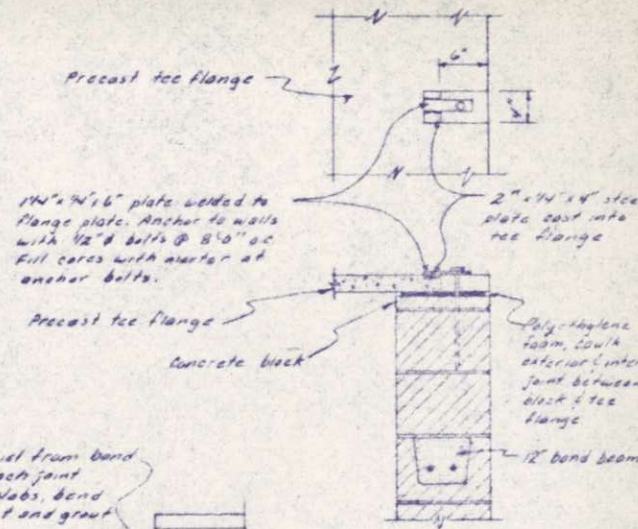 6"
Precast tee flange
4"
plate welded to
flange plate. Anchor to walls
with 1/2" ø bolts @ 8'-0" oc
Fill cores with mortar at
anchor bolts.
2" x 1/4" x 4" steel
plate cast into
tee flange
Precast tee flange
Concrete block
Polyethylene
foam, caulk
exterior &
joint between
block & tee
flange
12" bond beam
from bond
each joint
slabs, bend
and grout